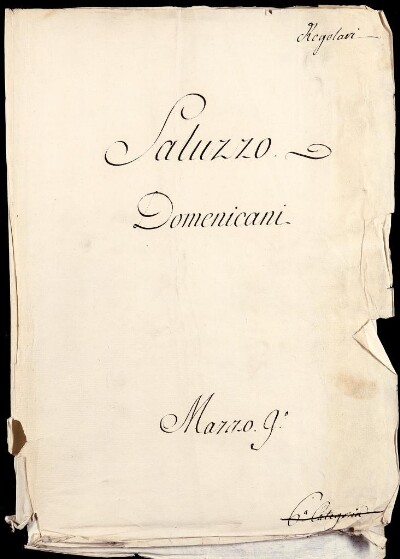 Regolari
Saluzzo.
Domenicani.
Mazzo. 9.º
6.ª Categoria